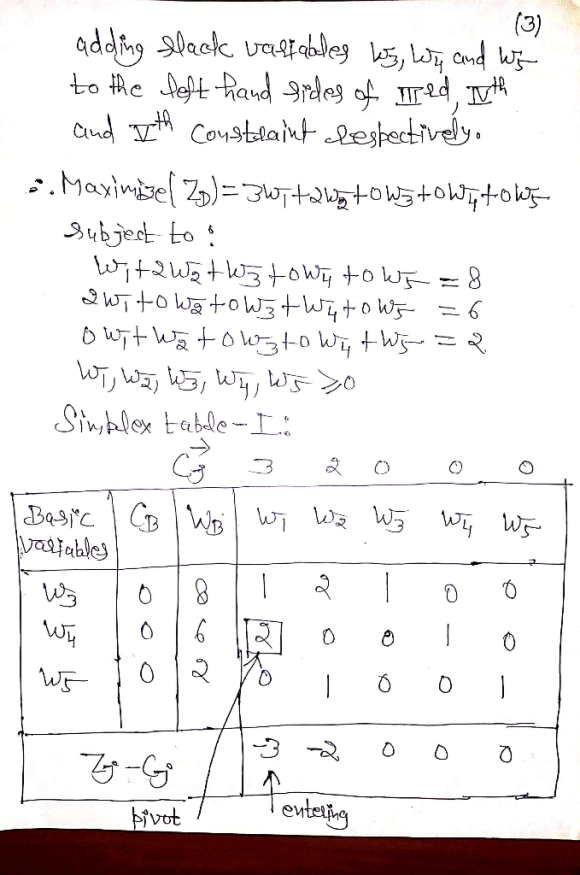 (3)
adding slack variables W₃, W₄ and W₅
to the left hand sides of IIIrd, IVth
and Vth constraint respectively.
∴ Maximize(Z_D) = 3W₁+2W₂+0W₃+0W₄+0W₅
subject to :
W₁+2W₂+W₃+0W₄+0W₅ = 8
2W₁+0W₂+0W₃+W₄+0W₅ = 6
0W₁+W₂+0W₃+0W₄+W₅ = 2
W₁, W₂, W₃, W₄, W₅ ≥0
Simplex table-I:
Cj → 3 2 0 0 0
Basic variables C_B W_B W₁ W₂ W₃ W₄ W₅
W₃ 0 8 1 2 1 0 0
W₄ 0 6 2 0 0 1 0
W₅ 0 2 0 1 0 0 1
Zj-Cj -3 -2 0 0 0
pivot entering